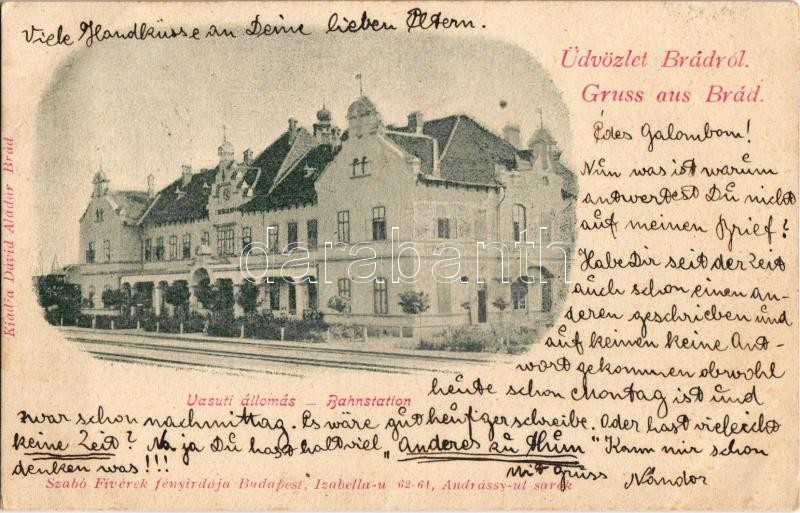 Viele Handküsse an Deine lieben Eltern.
Üdvözlet Brádról.
Gruss aus Brád.
Édes Galambom!
Nun was ist warum
antwortest Du nicht
auf meinen Brief?
Habe Dir seit der Zeit
auch schon einen an-
deren geschrieben und
auf keinen keine Ant-
wort gekommen obwohl
heute schon Montag ist und
zwar schon nachmittag. Es wäre gut schreibe. Oder hast vieleicht
keine Zeit? Na ja Du hast halt viel „Anderes zu thun" Kann mir schon
denken was!!!
Mit Gruss
Nándor
Vasuti állomás — Bahnstation
Szabó Fivérek fényirdája Budapest, Izabella-u 62-64, Andrássy-ut sarok
Kiadja Dávid Aladár Brád
darabanth